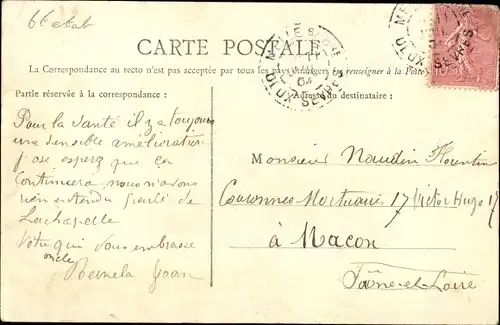 CARTE POSTALE
La Correspondance au recto n'est pas acceptée par tous les pays étrangers (Se renseigner à la Poste)
Partie réservée à la correspondance :
Adresse du destinataire :
DEUX SÈVRES
04
DEUX SÈVRES
Pour la santé il y a toujours
une sensible amélioration
j'ose esperez que ça
continuera nous n'avons
rien entendu parlé de
Lachapelle
Votre qui vous embrasse
oncle
Jean
Monsieur Naudin
Couronnes Mortuaires 17 Victor Hugo 17
à Macon
Saône-et-Loire